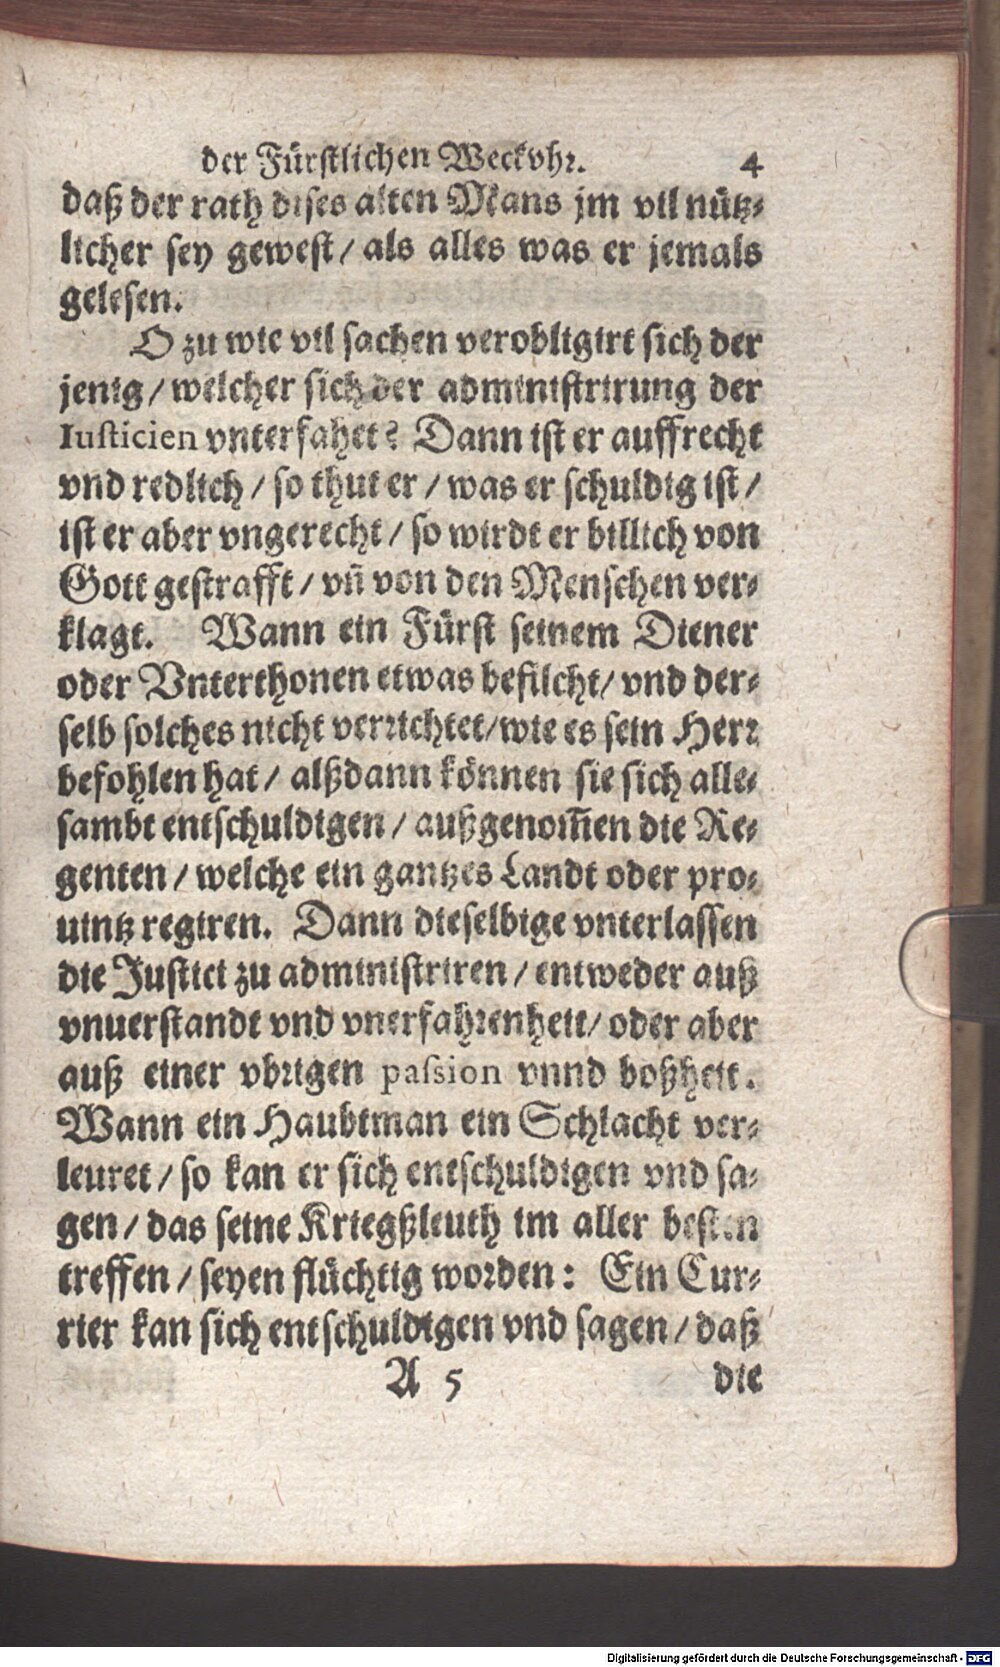 der Fürstlichen Weckvhr. 4
daß der rath dises alten Mans jm vil nütz-
licher sey gewest / als alles was er jemals
gelesen.
O zu wie vil sachen verobligirt sich der
jenig / welcher sich der administrirung der
Iusticien vnterfahet? Dann ist er auffrecht
vnd redlich / so thut er / was er schuldig ist /
ist er aber vngerecht / so wirdt er billich von
Gott gestrafft / vñ von den Menschen ver-
klagt. Wann ein Fürst seinem Diener
oder Vnterthonen etwas befilcht / vnd der-
selb solches nicht verrichtet / wie es sein Herr
befohlen hat / alßdann können sie sich alle-
sambt entschuldigen / außgenom̃en die Re-
genten / welche ein gantzes Landt oder pro-
uintz regiren. Dann dieselbige vnterlassen
die Justici zu administriren / entweder auß
vnuerstandt vnd vnerfahrenheit / oder aber
auß einer vbrigen passion vnnd boßheit.
Wann ein Haubtman ein Schlacht ver-
leuret / so kan er sich entschuldigen vnd sa-
gen / das seine Kriegßleuth im aller besten
treffen / seyen flüchtig worden: Ein Cur-
rier kan sich entschuldigen vnd sagen / daß
A 5 die
Digitalisierung gefördert durch die Deutsche Forschungsgemeinschaft - DFG